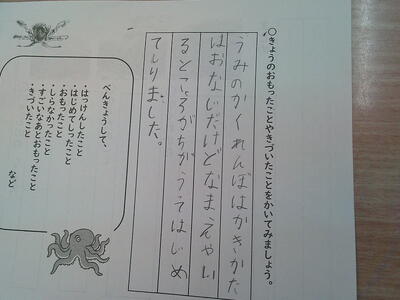 ○きょうのおもったことやきづいたことをかいてみましょう。
うみのかくれんぼはかきかた
はおなじだけどなまえやい
るところがちがううてはじめ
てしりました。
べんきょうして、
・はっけんしたこと
・はじめてしったこと
・おもったこと
・しらなかったこと
・すごいなあとおもったこと
・きづいたこと
など